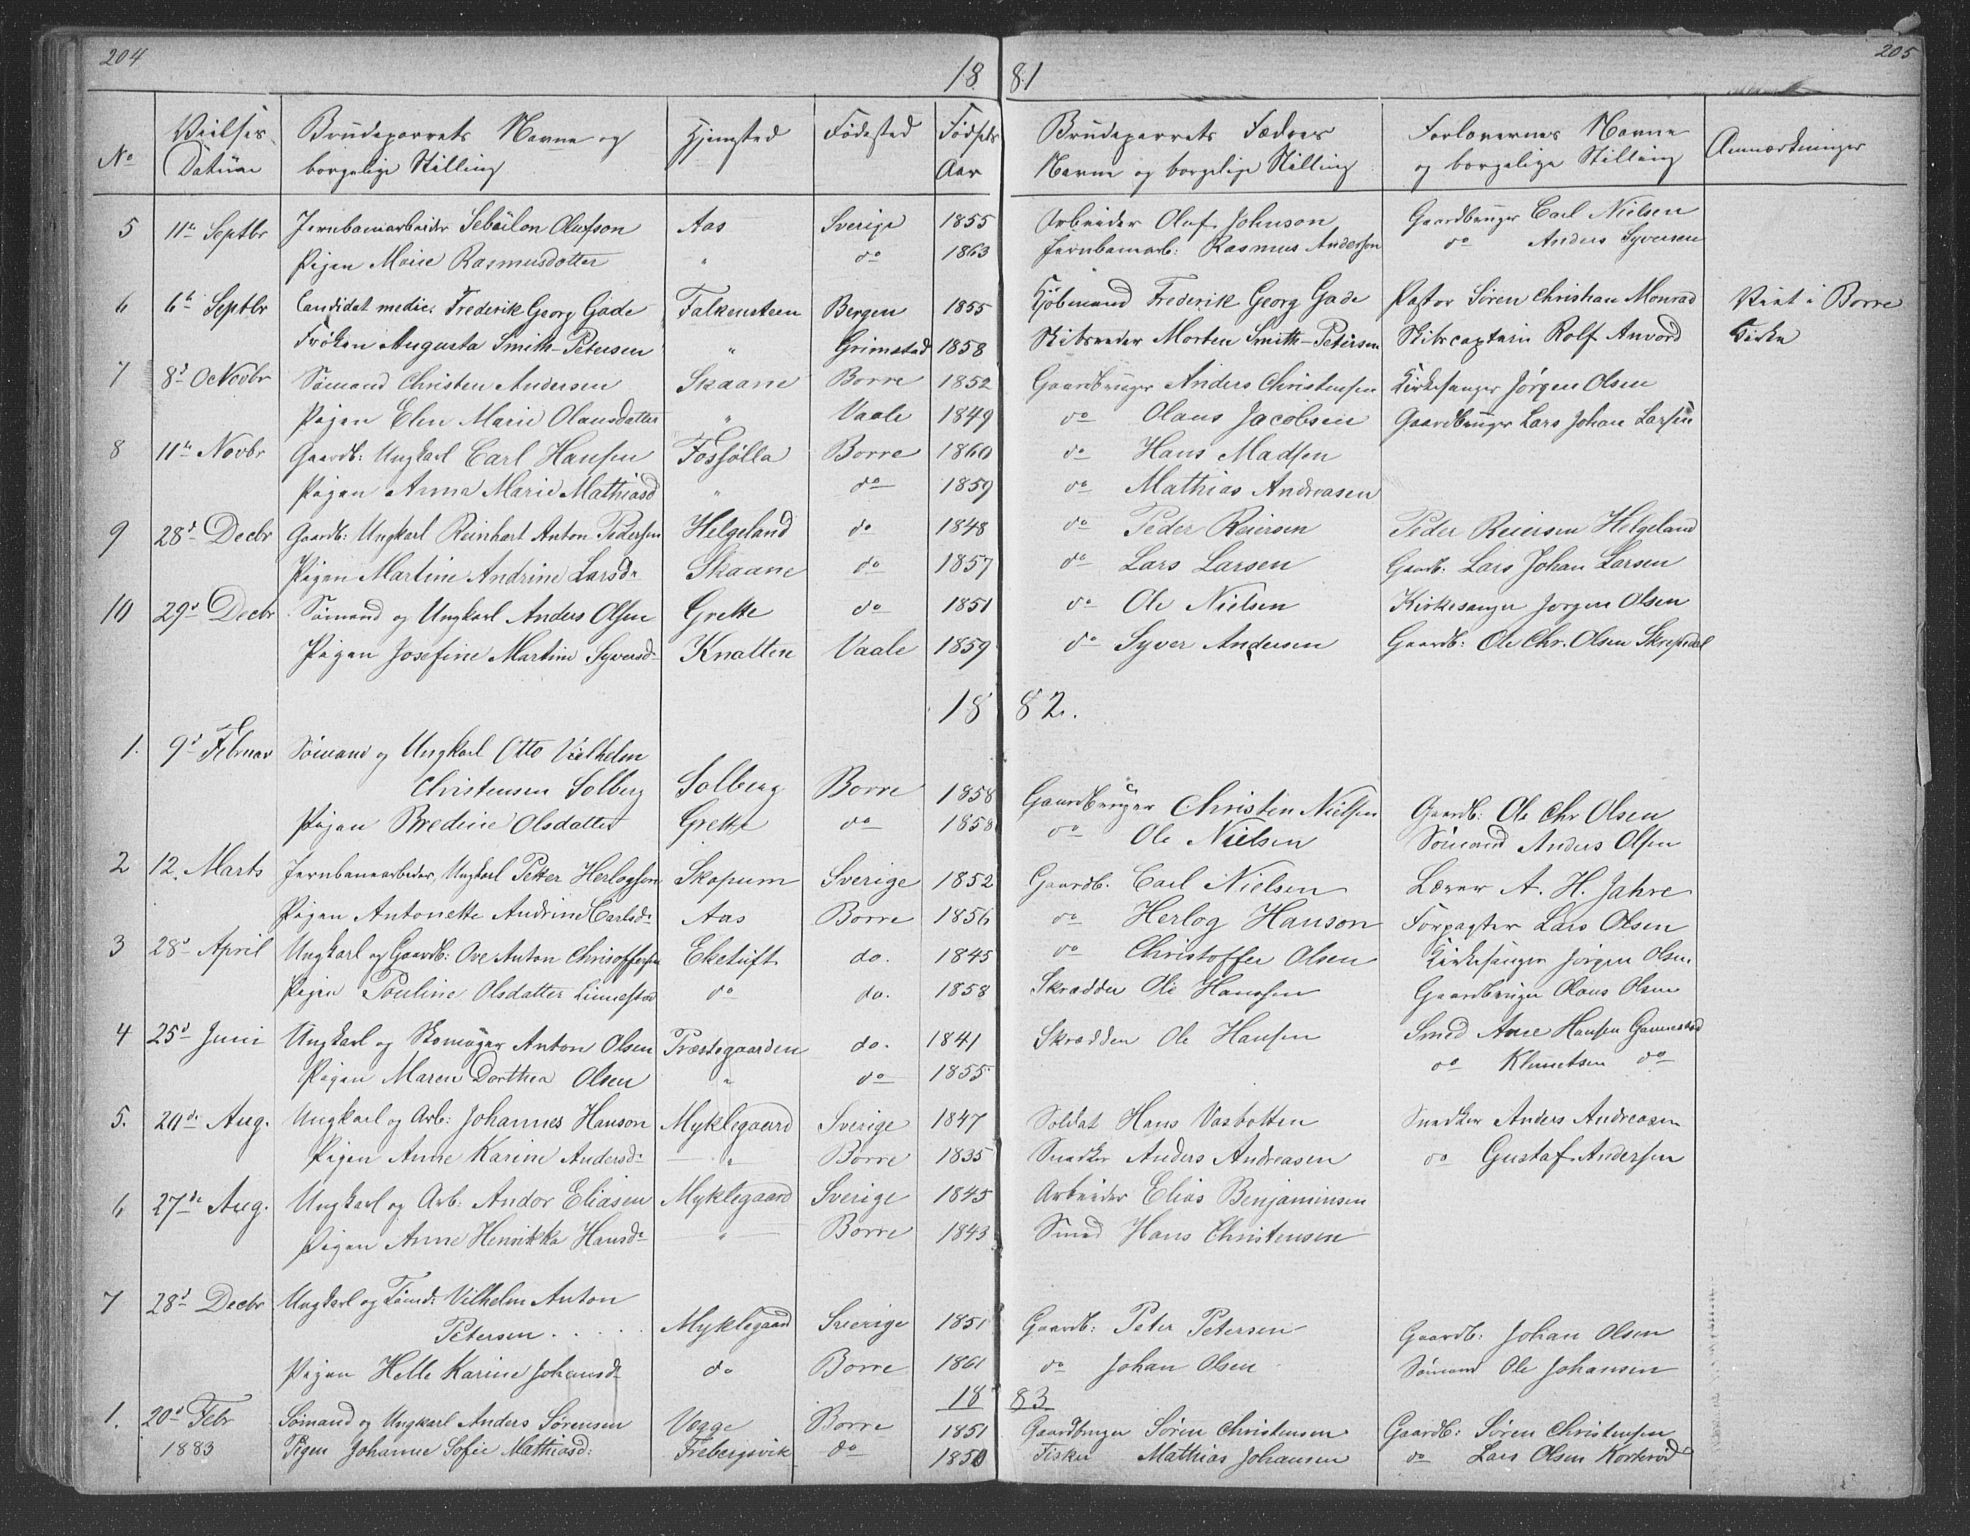 204
18 81
205
No
Vielses Datum
Brudeparrets Navne og borgelige Stilling
Hjemsted
Fødested
Fødsels Aar
Brudeparrets Fædres Navne og borgelige Stilling
Forlovernes Navne og borgelige Stilling
Anmærkninger
5 11te Septbr Jernbanearbeider Olufson Aas Sverige 1855 Arbeider Oluf Johnson Gaardbruger Carl Nielsen
Pigen Marie Rasmusdotter " do 1863 Jernbanearb: Rasmus Andersen do Anders Syversen
6 6te Septbr Candidat medic. Frederik Georg Gade Falkensteen Bergen 1855 Kjøbmand Frederik Georg Gade Pastor Søren Christian Monrad Viet i Borre
Frøken Augusta Smith-Petersen " Grimstad 1858 Skibsreder Morten Smith-Petersen Skibscaptein Rolf Anvord Kirke
7 8de Novbr Sømand Christen Andersen Skaane Borre 1852 Gaardbruger Anders Christensen Kirkesanger Jørgen Olsen
Pigen Elen Marie Olausdatter " Vaale 1849 do Olaus Jacobsen Gaardbruger Lars Johan Larsen
8 11te Novbr Gaardb: Ungkarl Carl Hansen Fossølla Borre 1860 do Hans Madsen
Pigen Anna Marie Mathiasd " do 1859 do Mathias Andreasen
9 28de Decbr Gaardb: Ungkarl Reinhart Anton Pedersen Helgeland do 1848 do Peder Reiersen Peder Reiersen Helgeland
Pigen Martine Andrine Larsd. Skaane do 1857 do Lars Larsen Gaardb. Lars Johan Larsen
10 29de Decbr Sømand og Ungkarl Anders Olsen Grette do 1851 do Ole Nielsen Kirkesanger Jørgen Olsen
Pigen Josefine Martine Syversd. Knatten Vaale 1859 do Syver Andersen Gaardb: Ole Chr. Olsen
18 82.
1. 9de Februar Sømand og Ungkarl Otto Vilhelm
Christensen Solberg Solberg Borre 1858 Gaardbruger Christen Nielsen Gaardb: Ole Chr Olsen
Pigen Bredine Olsdatter Grette do 1858 do Ole Nielsen Sømand Anders Olsen
2 12. Marts Jernbanearbeider, Ungkarl Petter Herlogson Skopum Sverige 1852 Gaardb. Carl Nielsen Lærer A. H. Jahre
Pigen Antonette Andrine Carlsd. Aas Borre 1856 do Herlog Hanson Forpagter Lars Olsen
3 28de April Ungkarl og Gaardb: Ove Anton Christoffersen Eketuft do. 1845 do Christoffer Olsen Kirkesanger Jørgen Olsen.
Pigen Pouline Olsdatter do do. 1858 Skrædder Ole Hanssen Gaardbruger Olaus Olsen
4 25de Juni Ungkarl og Skomager Anton Olsen Præstegaarden do. 1841 Skrædder Ole Hansen Smed Hansen
Pigen Maren Dorthea Olsen " do 1855 do do
5. 20de Aug. Ungkarl og Arb: Johannes Hanson Myklegaard Sverige 1847 Soldat Hans Vasbotten Snedker Anders Andreasen
Pigen Anne Karine Andersd. " Borre 1835 Snedker Anders Andreasen do Gustaf Andersen
6 27de Aug. Ungkarl og Arb: Andor Eliasen Myklegaard Sverige 1845 Arbeider Elias Benjaminsen
Pigen Anne Henrikka Hansd. " Borre 1843 Smed Hans Christensen
7 28de Decbr Ungkarl og Tømd: Vilhelm Anton
Petersen . . . . Myklegaard Sverige 1851 Gaardb: Peter Petersen Gaardb: Johan Olsen
Pigen Helle Karine Johansd. do Borre 1861 do Johan Olsen Sømand Ole Johansen
18 83
1. 20de Febr Sømand og Ungkarl Anders Sørensen Vegge Borre 1851 Gaardbruger Søren Christensen Gaardb: Søren Christensen
1883 Pigen Johanne Sofie Mathiasd: Frebergsvik do 1850 Fisker Mathias Johansen do Lars Olsen